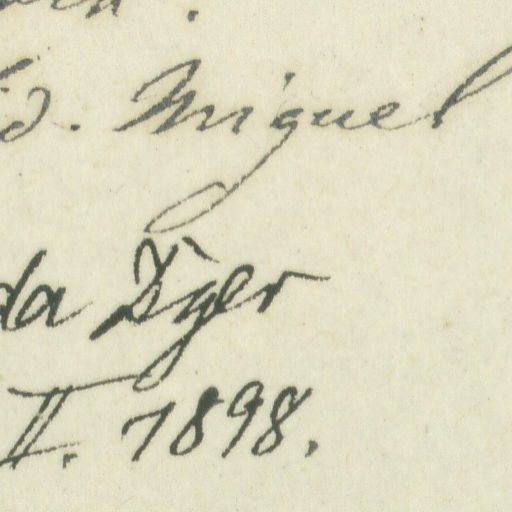 d. Miguel
da Dyer
II. 1898.